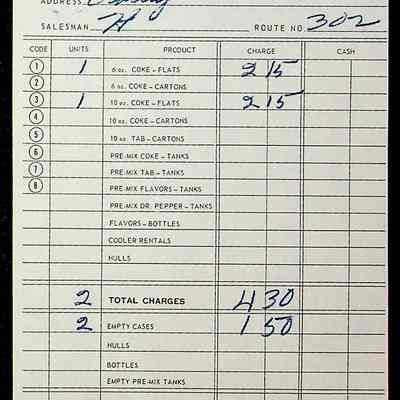 ADDRESS
SALESMAN H ROUTE NO. 302
CODE UNITS PRODUCT CHARGE CASH
1 1 6 oz. COKE - FLATS 2 15
2 6 oz. COKE - CARTONS
3 1 10 oz. COKE - FLATS 2 15
4 10 oz. COKE - CARTONS
5 10 oz. TAB - CARTONS
6 PRE-MIX COKE - TANKS
7 PRE-MIX TAB - TANKS
8 PRE-MIX FLAVORS - TANKS
PRE-MIX DR. PEPPER - TANKS
FLAVORS - BOTTLES
COOLER RENTALS
HULLS
2 TOTAL CHARGES 4 30
2 EMPTY CASES 1 50
HULLS
BOTTLES
EMPTY PRE-MIX TANKS